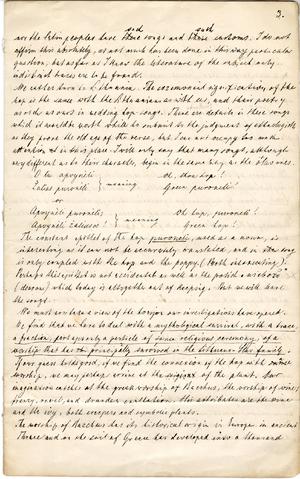 3.
such such
are the Letton peoples have these songs and these customs. I do not
affirm this absolutely, as not much has been done in this very particular
question, but as far as I know the literature of the subject only
indistinct traces are to be found.
We rather turn to Lithuania. The ceremonial signification of the
hop is the same with the Lithuanians as with us, and their poetry
worth as much in wedding hop-songs. There are details in these songs
which it would be worth while to submit to the judgment of
as they prove the old age of the verse, but I can not occupy too much
attention in this place. I will only say that many songs, although
very different as to their character, begin in the same way as the Flos ones.
O tu apvynėli } meaning Oh, thou hop!
Žalias puronėli Green puronėli!
or
Apvynėli puronėlis } meaning Oh hop, puronėli!
Apvynėli žaliasis! Green hop!
The constant epithet of the hop puronėli, used as a noun, is
interesting as it can not be accurately translated, and in song
is only coupled with the hop and the poppy. (Both intoxicating).
Perhaps this epithet is not accidental as well as the
(demon) which today is altogether out of keeping. But we will leave
the songs.
We must now take a view of the horizon our investigations have opened.
We find that we have to deal with a mythological survival, with a trace,
a fraction, perhaps only a particle of some religious ceremony, of a
worship that has principally survived in the Lithuano-Slav family.
If our guess holds good, if we find the connexion of the hop with
worship, we may perhaps arrive at the origin of the plant. Our
imagination catches at the greek worship of Bacchus, the worship of wine,
frenzy, revel, and drunken exultation. His attributes are the wine
and the ivy, both creepers and symbolic plants.
The worship of Bacchus has its historical origin in Europe in ancient
Thrace and on the soil of Greece has developed into a thousand